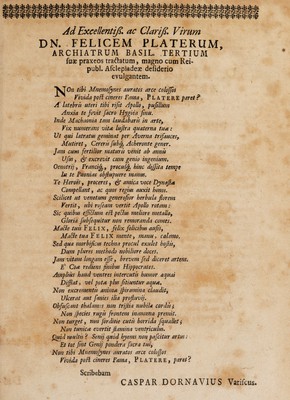 Ad Excellentiß. ac Clariß. Virum
DN. FELICEM PLATERUM,
ARCHIATRUM BASIL. TERTIUM
suæ praxeos tractatum, magno cum Rei-
publ. Asclepiadeæ desiderio
evulgantem.
NOn tibi Mnemosynes auratas arce colossos
Vivida post cineres Fama, PLATERE paret?
A latebris uteri tibi risit Apollo, pusillum
Anxia te fovit sacra Hygiéa sinu.
Inde Machaonia tam laudabaris in arte,
Vix numerans vitæ lustra quaterna tuæ:
Ut qui latratus geminat per Averna trifauces,
Mutiret, Cereris subiij Acheronte gener.
Jam cum fertilior maturis venit ab annis
Usus, & exercuit cum genio ingenium.
Oenotrij, Francíq;, procúlq; hinc dissita tempe
In te Pœonias obstupuere manus.
Te Heroës, proceres, & amica voce Dynastæ
Compellant, ac quos regius auxit honos.
Scilicet ut ventorum generosior herbula florem
Vertit, ubi roseum vertit Apollo rotam:
Sic quibus effictum est pectus meliore metallo,
Gloria subsequitur non remoranda comes.
Macte tuis FELIX, felix felicibus ausis,
Macte tua FELIX mente, manu, calamo.
Sed qua morbificas technas procul exulet hostis,
Dum plures methodo nobiliore doces.
Jam vitam longam esse, brevem sed dicerat artem.
E Cæis rediens finibus Hippocrates.
Amplius haud ventres intercutis humor aquai
Distat, vel pota plus sitiuntur aqua.
Non excrementis animæ spiramina claudit,
Ulcerat aut sanies ilia prostavis.
Obfuscant thalamos non tristia nubila cordis;
Non species rugis frontem inamœna premit.
Non turget, non sordine cutis horrida squallet;
Non tunicæ exertis stamina ventriculus.
Quid multis? Senij quid hyems non pasitar artus:
Et tot sint Genij pondera sacra tui,
Non tibi Mnemosynes auratas arce colossos
Vivida post cineres Fama, PLATERE, paret?
Scribebam
CASPAR DORNAVIUS Variscus.